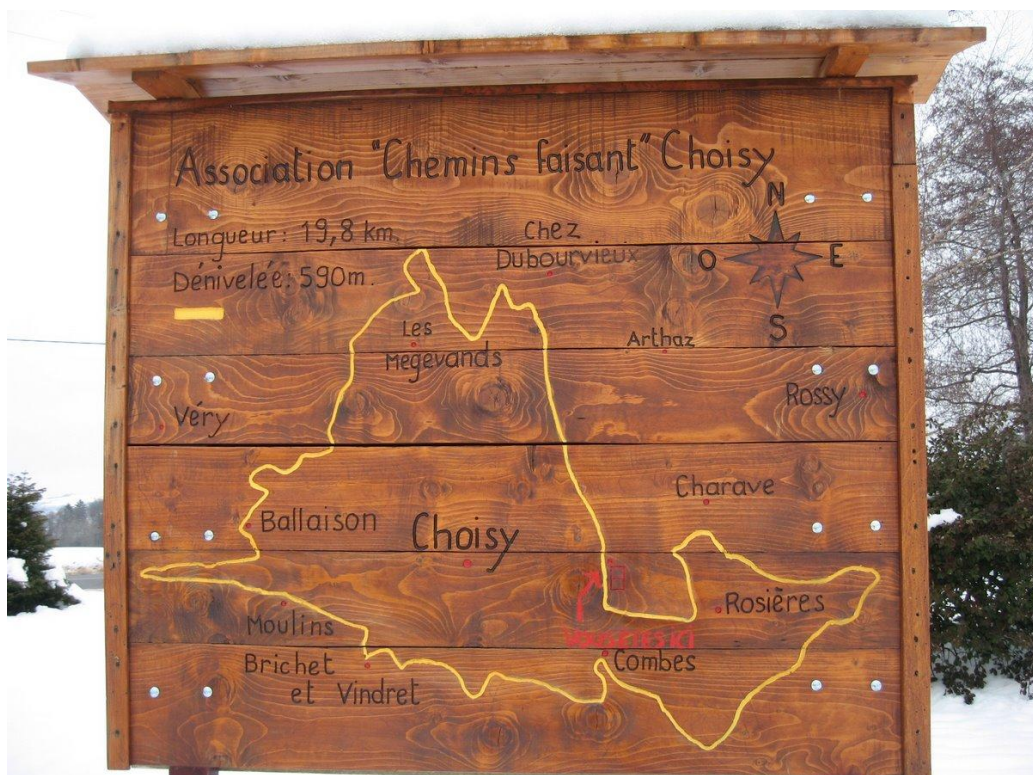 Association "Chemins faisant" Choisy
N
Longueur: 19,8 km.
Chez
Dubourvieux
O
E
Dénivelée: 590m.
S
Les
Mégevands
Arthaz
Rossy
Véry
Charave
Ballaison
Choisy
Rosières
Moulins
VOUS ETES ICI
Combes
Brichet
et Vindret